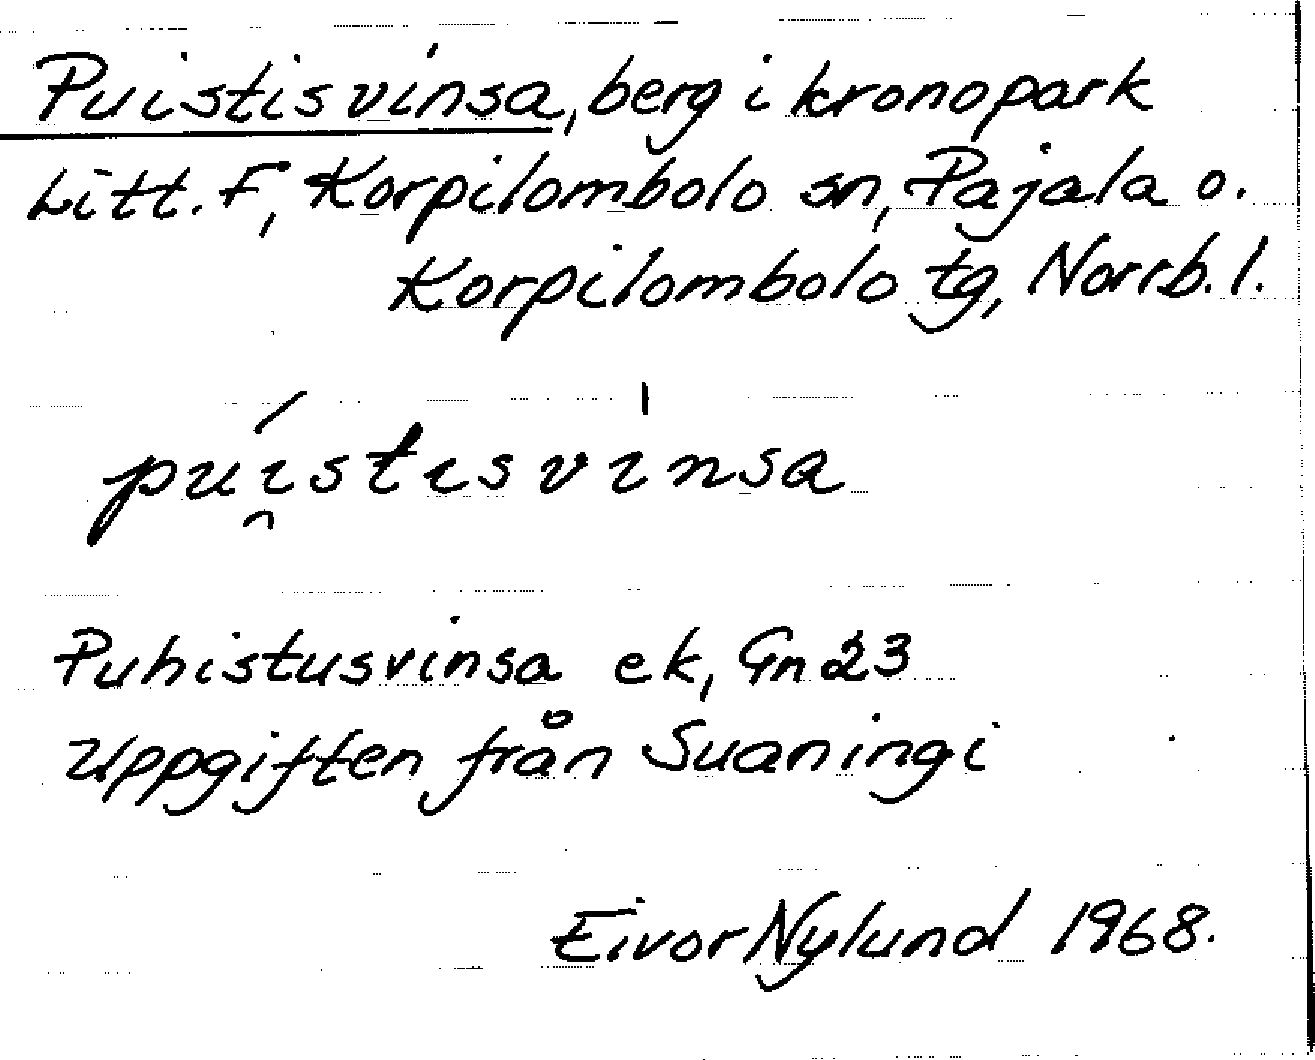 Puistisvinsa, berg i kronopark
Litt. F, Korpilombolo sn, Pajala o.
Korpilombolo tg, Norrb. l.
púi̯stisvˈinsa
Puhistusvinsa ek, Gn 23
Uppgiften från Suaningi
Eivor Nylund 1968.